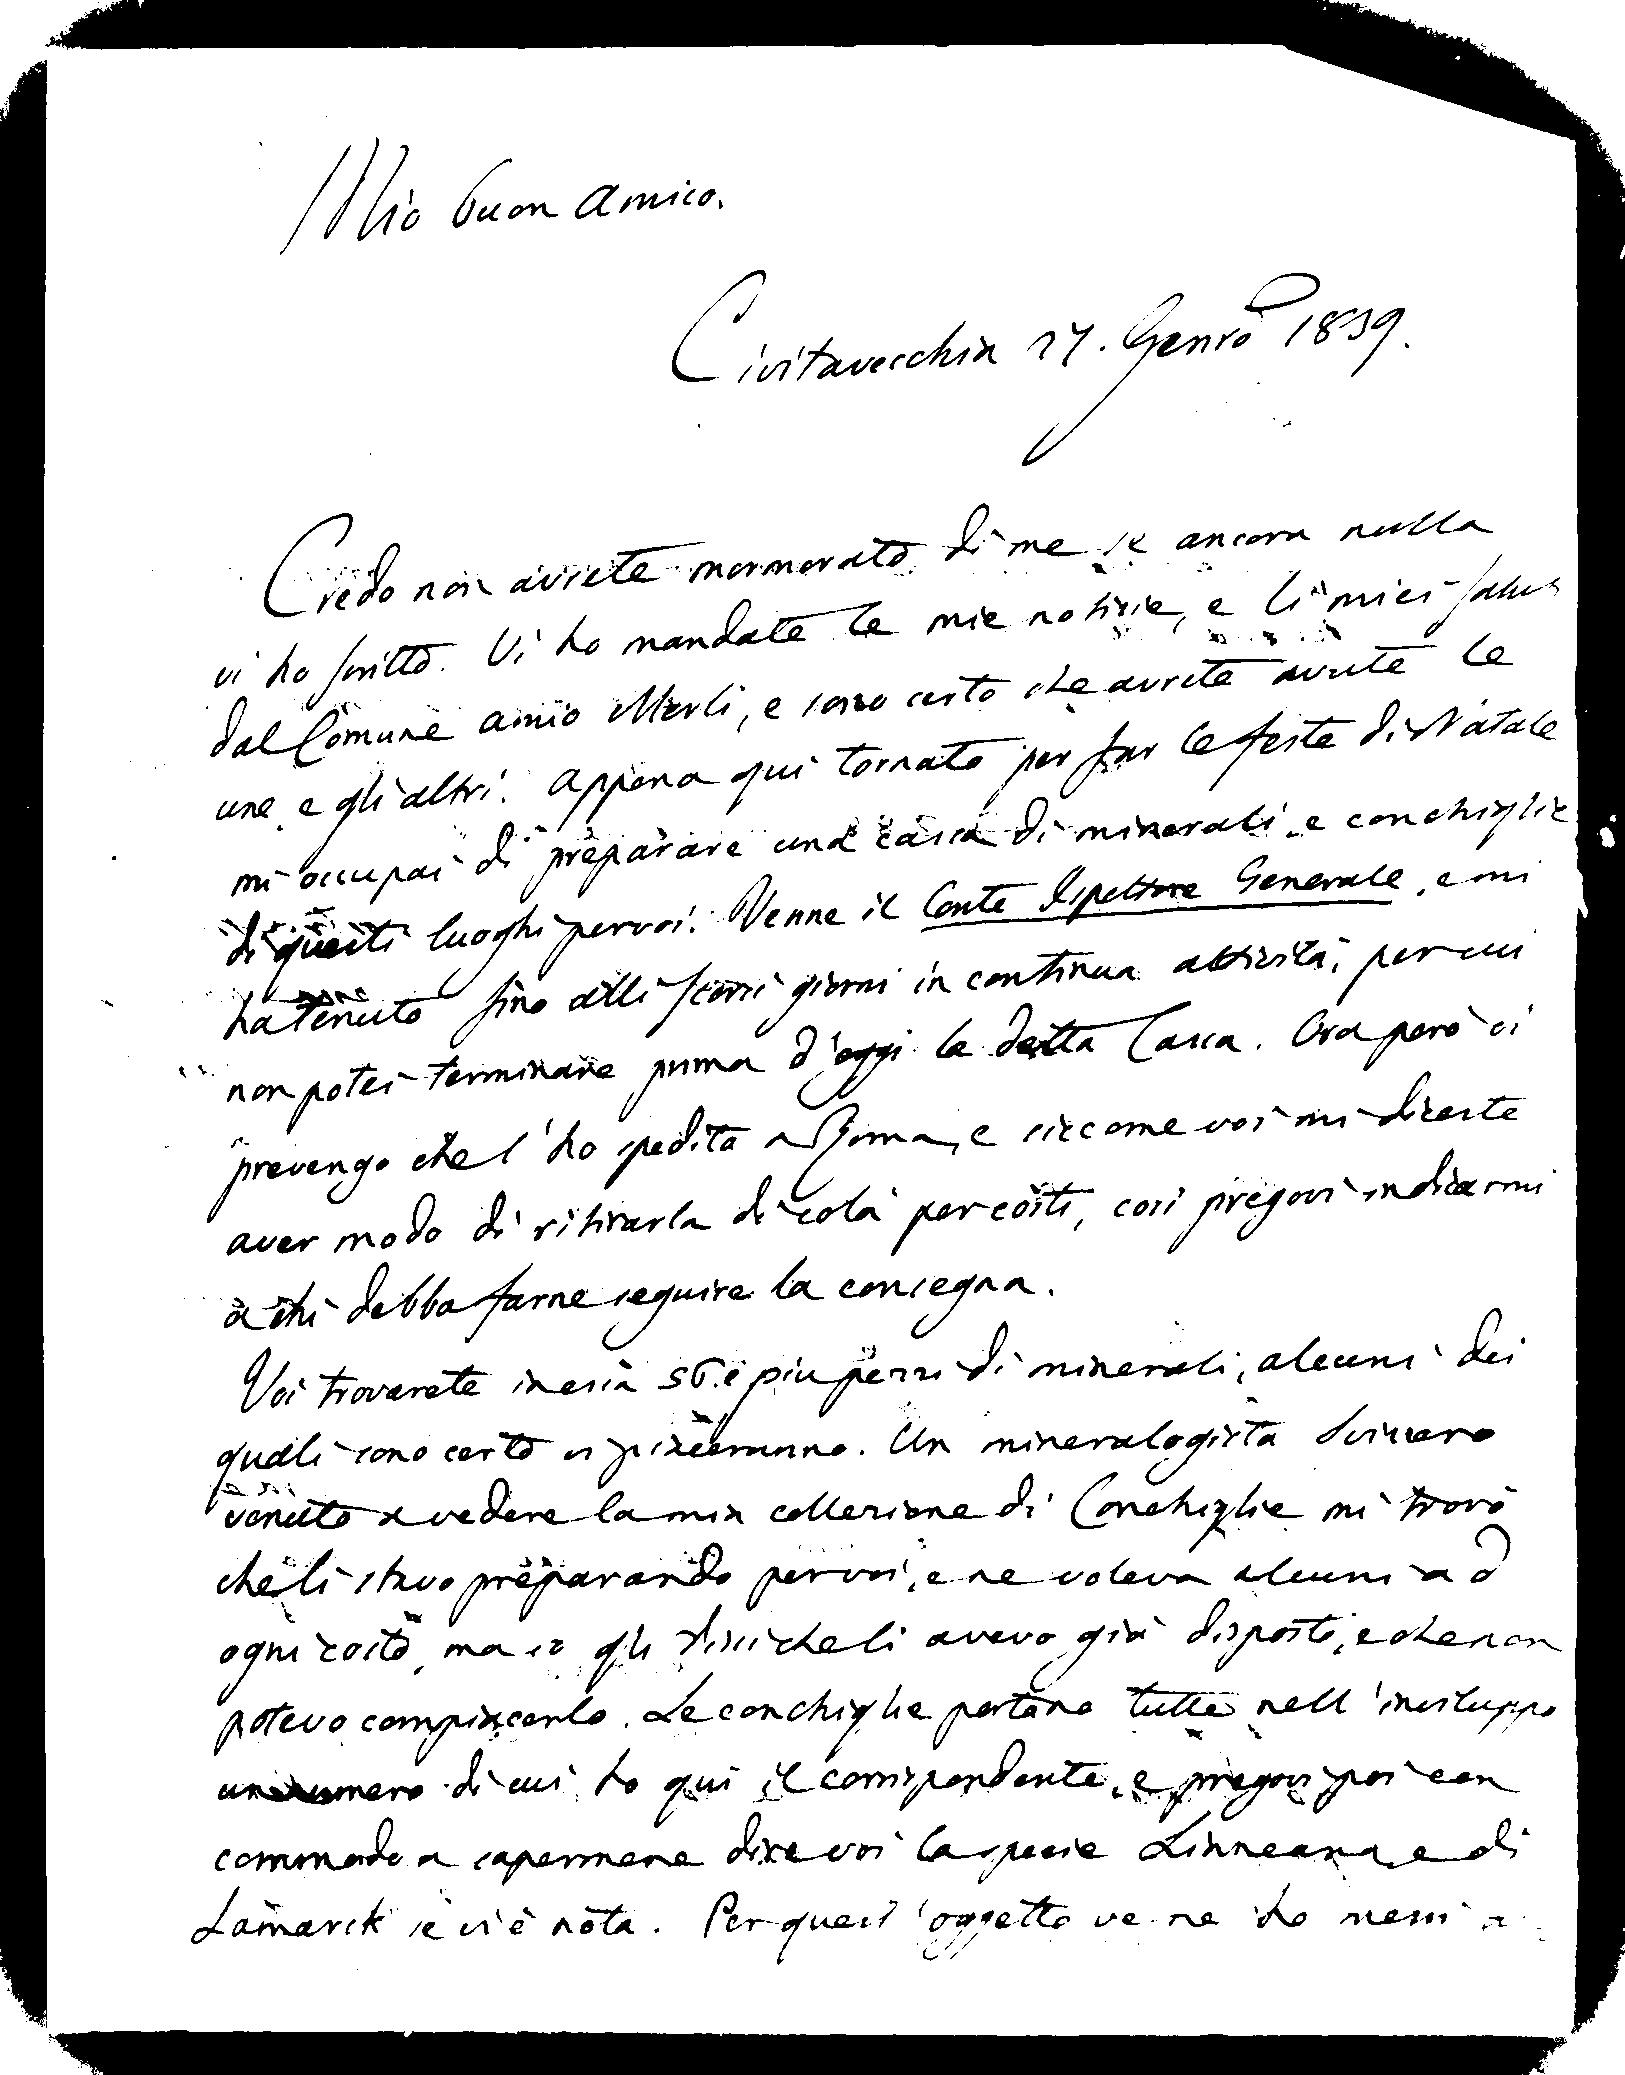 Mio buon Amico.
Civitavecchia 27. Genro 1839.
Credo non avrete mormorato di me se ancora nulla
vi ho scritto. Vi ho mandate le mie notizie, e li miei saluti
dal Comune amio Merli, e sono certo che avrete avute le
une e gli altri. Appena qui tornato per far le feste di Natale
mi occupai di preparare una cassa di minerali e conchiglie
di questi luoghi per voi. Venne il Conte Ispettore Generale, e mi
ha tenuto fino alli scorsi giorni in continua attività, per cui
non potei terminare prima d'oggi la detta Cassa. Ora però vi
prevengo che l'ho spedita a Roma, e siccome voi mi diceste
aver modo di ritirarla di colà per costì, così pregovi indicarmi
a chi debba farne seguire la consegna.
Voi troverete in essa 56. e più pezzi di minerali, alcuni dei
quali sono certo vi piaceranno. Un mineralogista Svizzero
venuto a vedere la mia collezione di Conchiglie mi trovò
che li stavo preparando per voi, e ne voleva alcuni ad
ogni costo, ma io gli dissi che li avevo già disposti, e che non
potevo compiacerlo. Le conchiglie portano tutte nell'inviluppo
un numero di cui ho qui il corrispondente, e pregovi poi con
commodo a sapermene dire voi la specie Linneana, e di
Lamarck se vi è nota. Per quest'oggetto ve ne ho messi